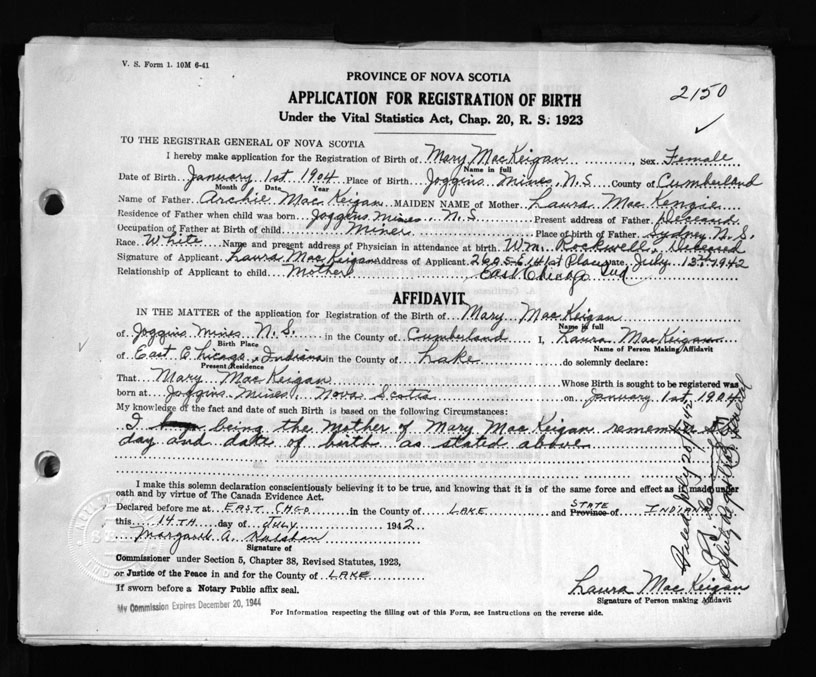 V. S. Form 1. 10M 6-41
PROVINCE OF NOVA SCOTIA
2150
APPLICATION FOR REGISTRATION OF BIRTH
Under the Vital Statistics Act, Chap. 20, R. S. 1923
TO THE REGISTRAR GENERAL OF NOVA SCOTIA
I hereby make application for the Registration of Birth of Mary MacKeigan, Sex Female
Name in full
Date of Birth January 1st 1904 Place of Birth Joggins Mines, N.S County of Cumberland
Month Date Year
Name of Father Archie MacKeigan MAIDEN NAME of Mother Laura MacKenzie
Residence of Father when child was born Joggins Mines, N.S Present address of Father Deceased
Occupation of Father at Birth of child Miner Place of birth of Father Sydney N.S.
Race White Name and present address of Physician in attendance at birth Wm. Rockwell, Deceased
Signature of Applicant Laura MacKeigan Address of Applicant 2605-E 141st Place Date July 13th 1942
Relationship of Applicant to child Mother East Chicago Ind
AFFIDAVIT
IN THE MATTER of the application for Registration of the Birth of Mary MacKeigan
Name in full
of Joggins Mines N.S. in the County of Cumberland I, Laura MacKeigan
Birth Place Name of Person Making Affidavit
of East Chicago, Indiana in the County of Lake do solemnly declare:
Present Residence
That Mary MacKeigan Whose Birth is sought to be registered was
born at Joggins Mines, Nova Scotia on January 1st, 1904
My knowledge of the fact and date of such Birth is based on the following Circumstances:
I being the Mother of Mary MacKeigan remember the
day and date of birth as stated above
I make this solemn declaration conscientiously believing it to be true, and knowing that it is of the same force and effect as if made under
oath and by virtue of The Canada Evidence Act.
Declared before me at EAST CHGO in the County of LAKE and STATE Province of INDIANA
this 14TH day of JULY 1942
Margaret A.
Signature of
Commissioner under Section 5, Chapter 38, Revised Statutes, 1923,
or Justice of the Peace in and for the County of LAKE
If sworn before a Notary Public affix seal.
My Commission Expires December 20, 1944
Laura MacKeigan
Signature of Person making Affidavit
For Information respecting the filling out of this Form, see Instructions on the reverse side.
Filed July 20/42